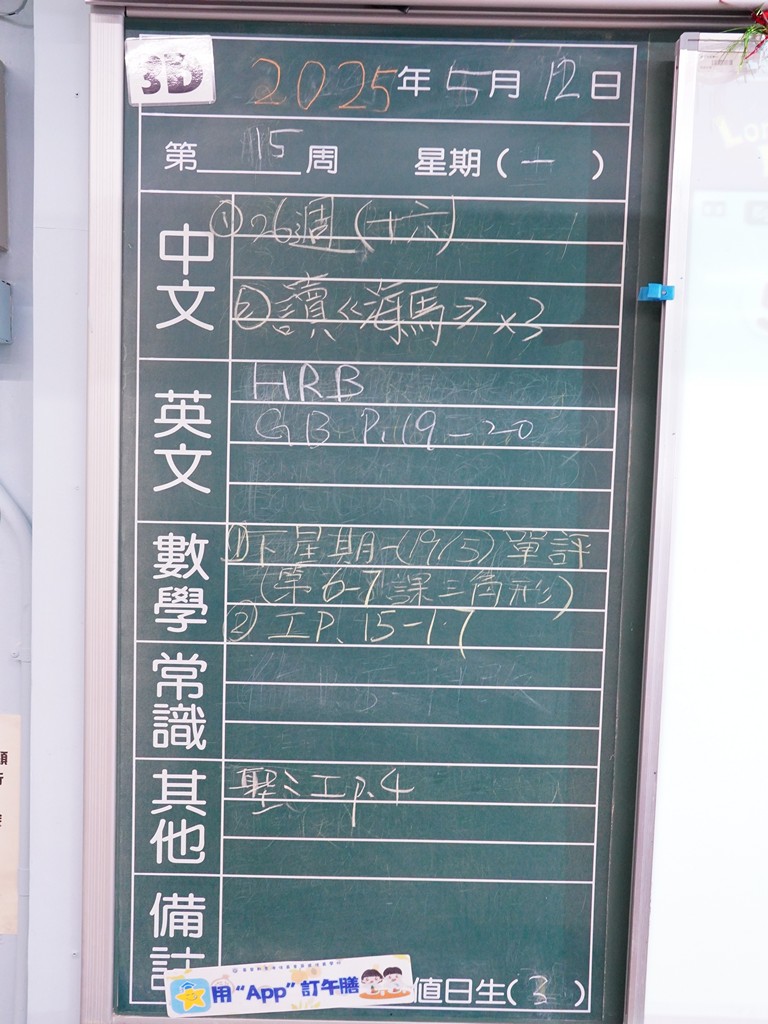 3D
2025年5月12日
第 15 周 星期(一)
中文
①26週(十六)
②讀《海馬》×3
英文
HRB
GB P.19-20
數學
①下星期一(19/5)單評
(第6-7課三角形)
②工P.15-17
常識
其他
聖:工p.4
備註
用“App”訂午膳
值日生(3)